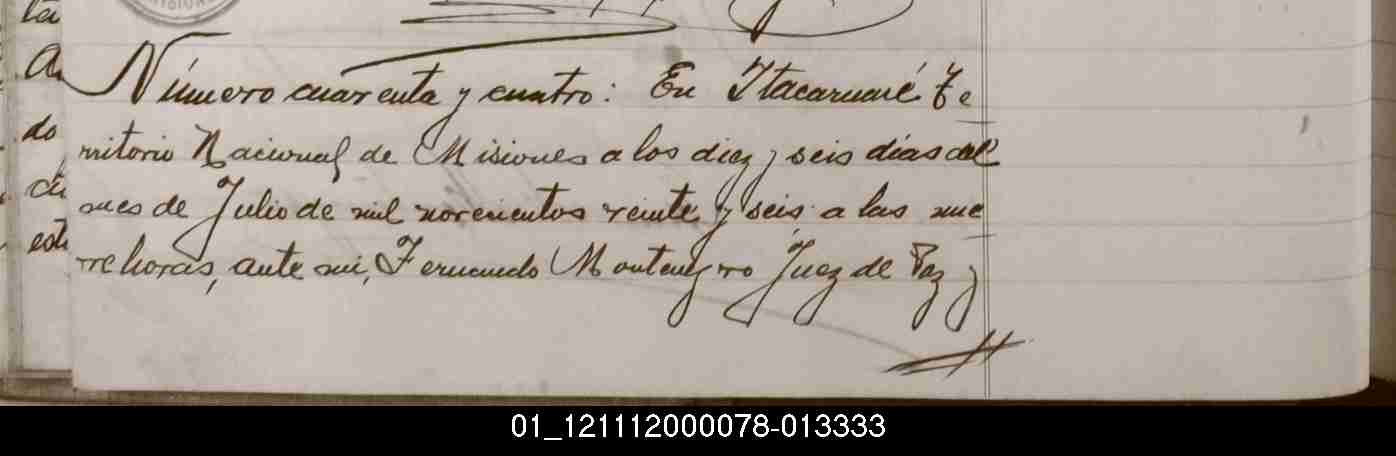 ta
A
Número cuarenta y cuatro: En Itacaruaré Te
do
rritorio Nacional de Misiones a los diez y seis días del
mes de Julio de mil novecientos veinte y seis a las nue
ve horas, ante mi, Fernando Montenegro Juez de Paz y
01_121112000078-013333